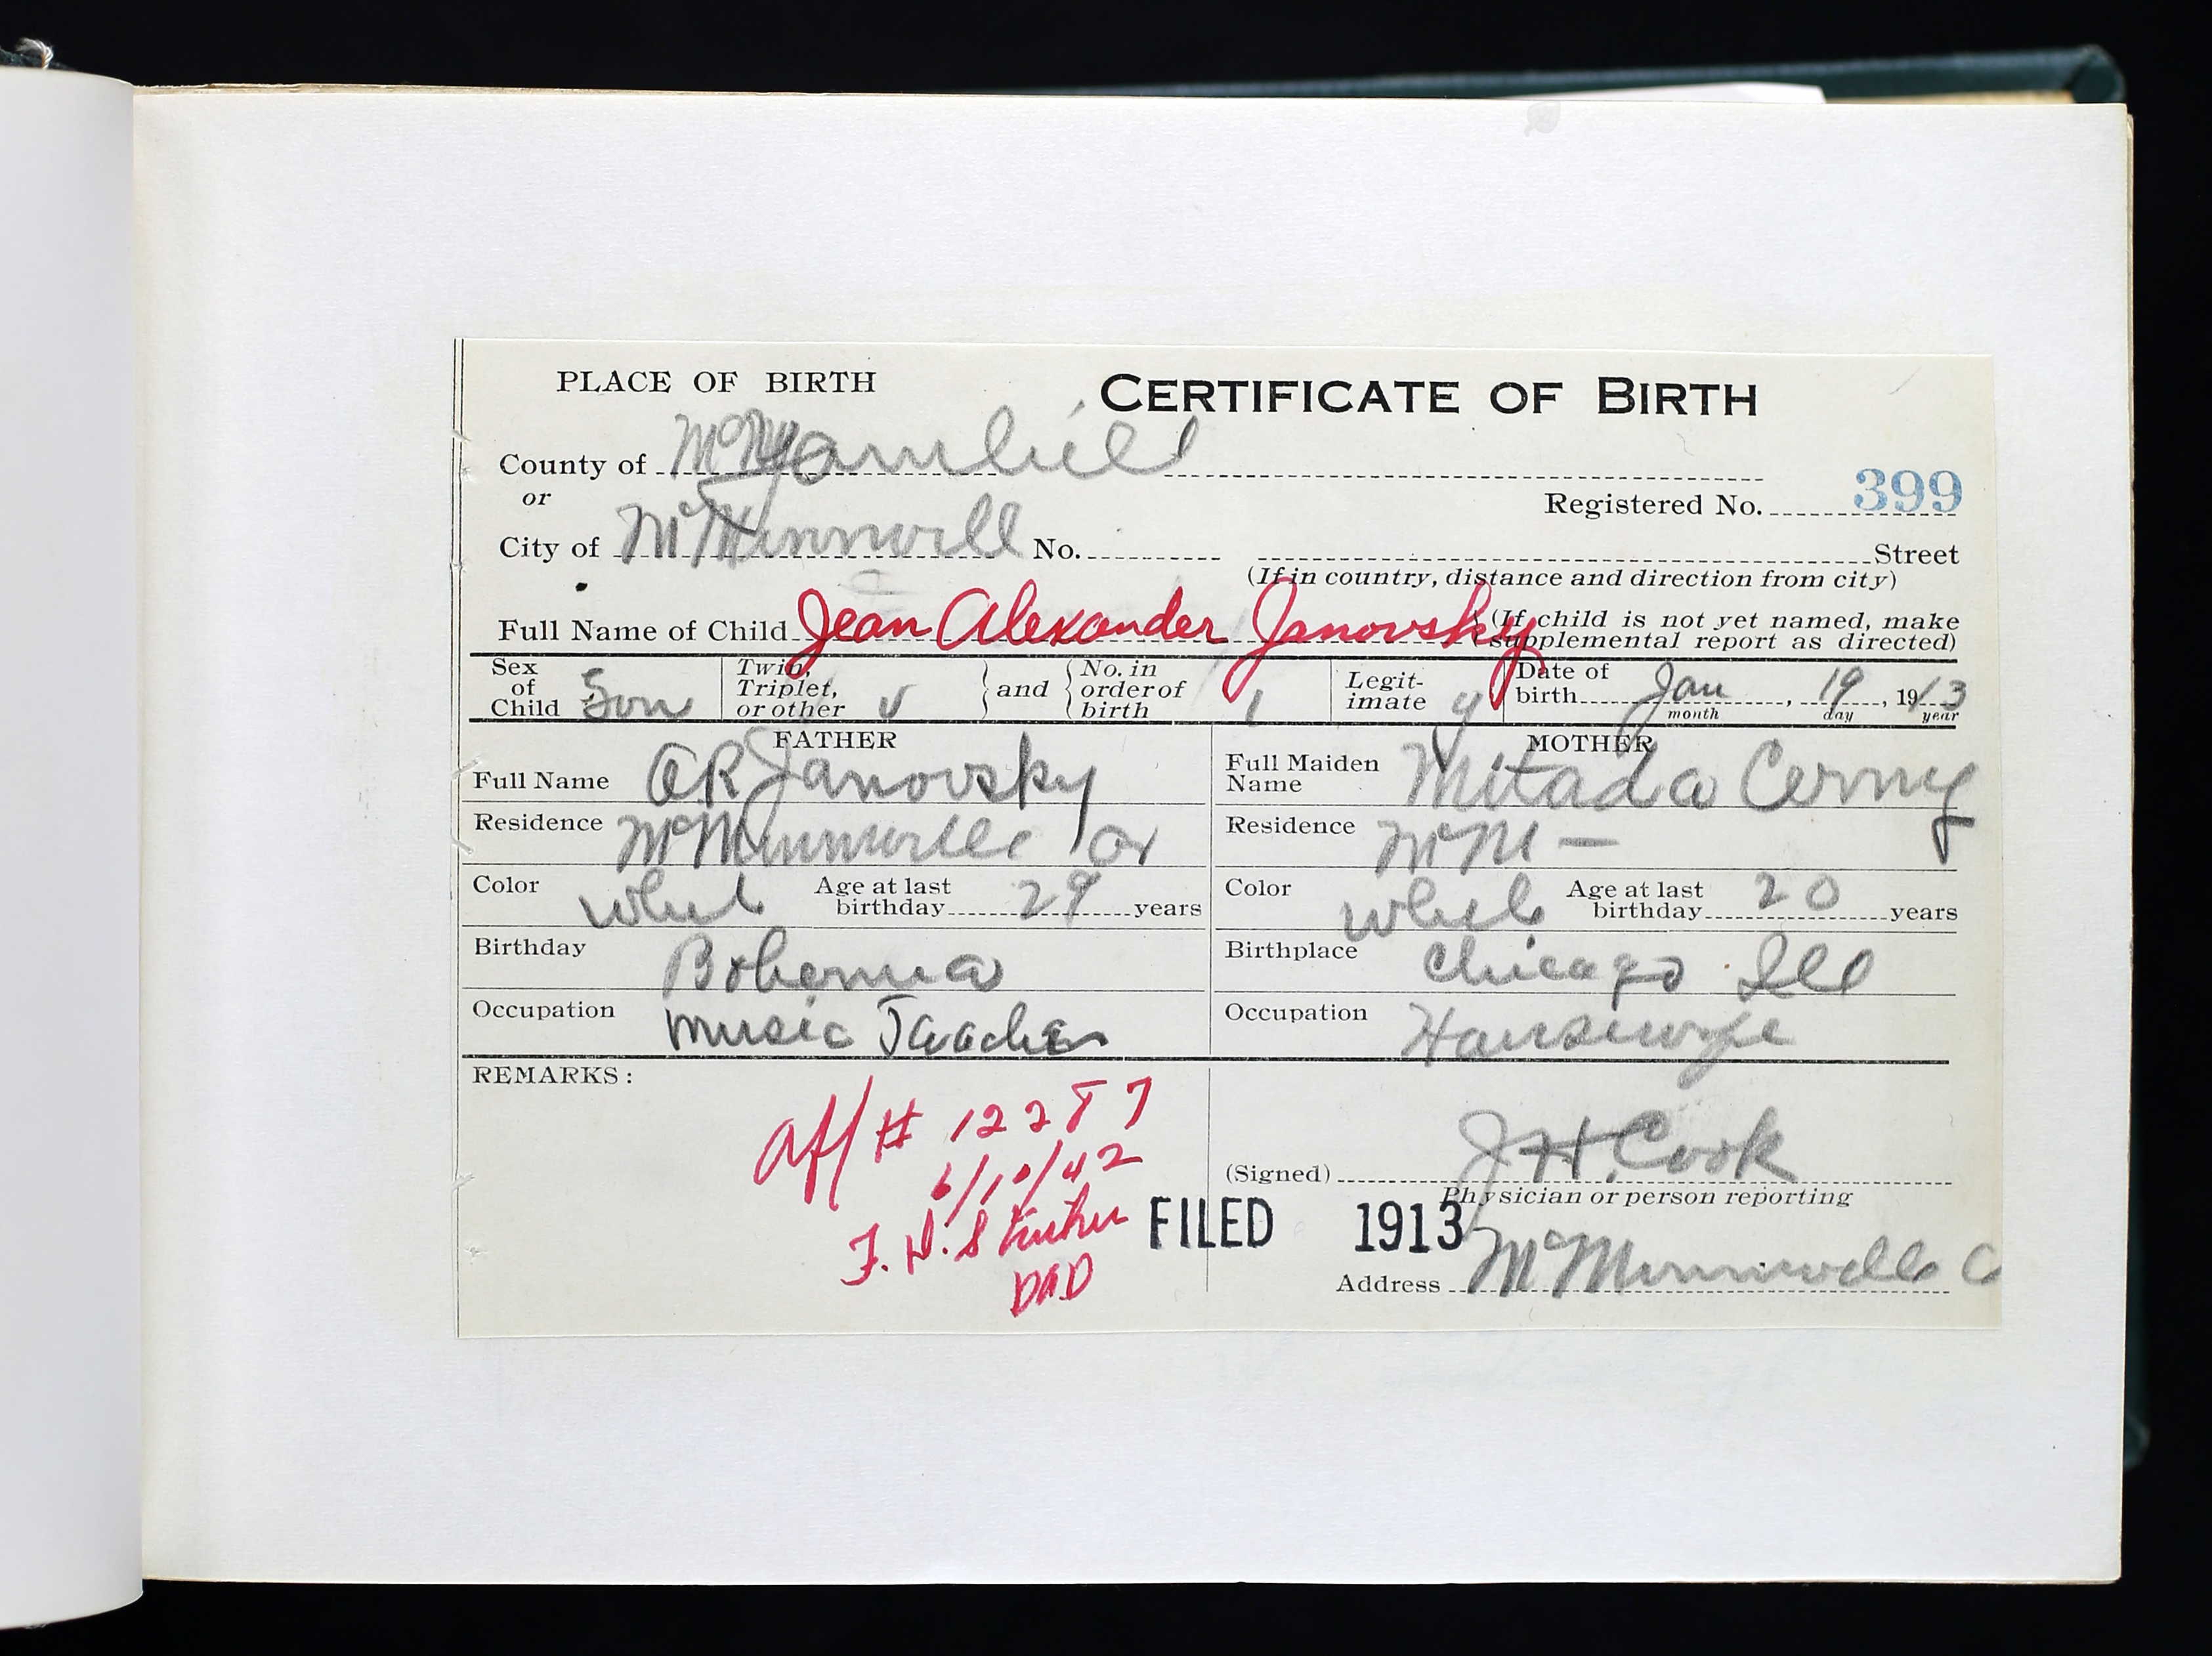 PLACE OF BIRTH
CERTIFICATE OF BIRTH
County of Yamhill
or
Registered No. 399
City of McMinnvill No. Street
(If in country, distance and direction from city)
Full Name of Child Jean Alexander Janovsky (If child is not yet named, make supplemental report as directed)
Sex of Child Son Twin, Triplet, or other and No. in order of birth 1 Legitimate y Date of birth Jan, 19, 1913
month day year
FATHER
Full Name AR Janovsky
Residence McMinnville Or
Color Age at last birthday 29 years
Birthday Bohemia
Occupation Music Teacher
MOTHER
Full Maiden Name Cerny
Residence McM —
Color Age at last birthday 20 years
Birthplace Chicago Ill
Occupation Housewife
REMARKS:
Aff # 12287
6/10/42
F. N. S
DAD
FILED 1913
(Signed) J H. Cook
Physician or person reporting
Address McMinnville